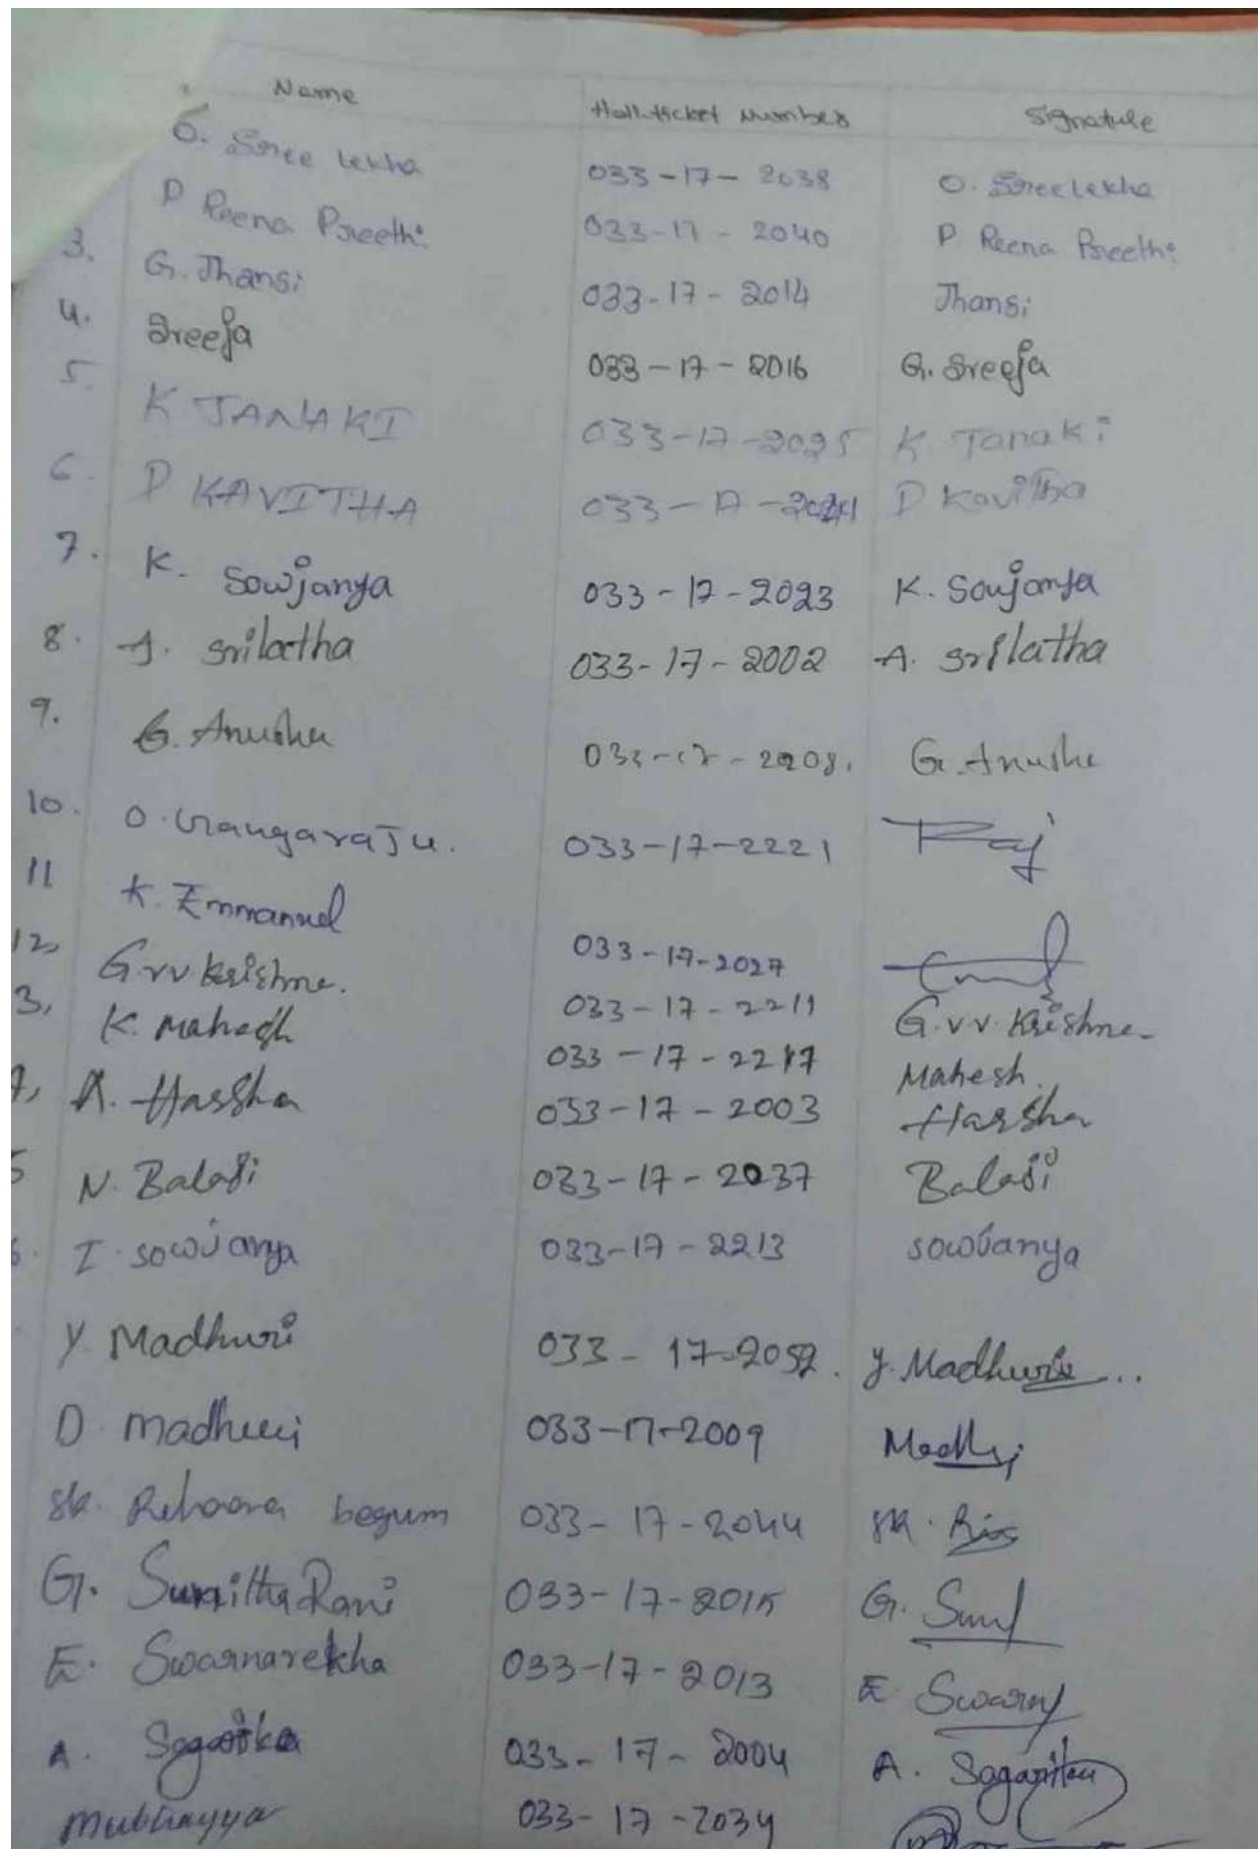 Name Hall.ticket Number Signature
O. Sree lekha 033-17-2038 O. Sreelekha
P Reena Preethi 033-17-2040 P. Reena Preethi
3. G. Jhansi 033-17-2014 Jhansi
4. Sreeja 033-17-2016 G. Sreeja
5. K JANAKI 033-17-2025 K Janaki
6. P KAVITHA 033-17- P Kavitha
7. K. Sowjanya 033-17-2023 K. Soujanya
8. A. Srilatha 033-17-2002 A. Srilatha
9. G. Anusha G. Anusha
10. O. Gangaraju. 033-17-2221 Raj
11 K. Emmanuel 033-17-2027
12, G.v.v Krishna. 033-17-2211 G.v.v. Krishna
3, K. Mahesh 033-17-2217 Mahesh.
A. Harsha 033-17-2003 Harsha
5 N. Balaji 033-17-2037 Balaji
I. sowjanya 033-17-2213 sowjanya
Y. Madhuri 033-17-2052. Y. Madhuri...
D. madhuri 033-17-2009
Sk. Rehaana begum 033-17-2044 SK.
G. Sunitha Rani 033-17-2015 G.
E. Swarnarekha 033-17-2013 E
A. Sagarika 033-17-2004 A. Sagarika
Mubhayya 033-17-2034